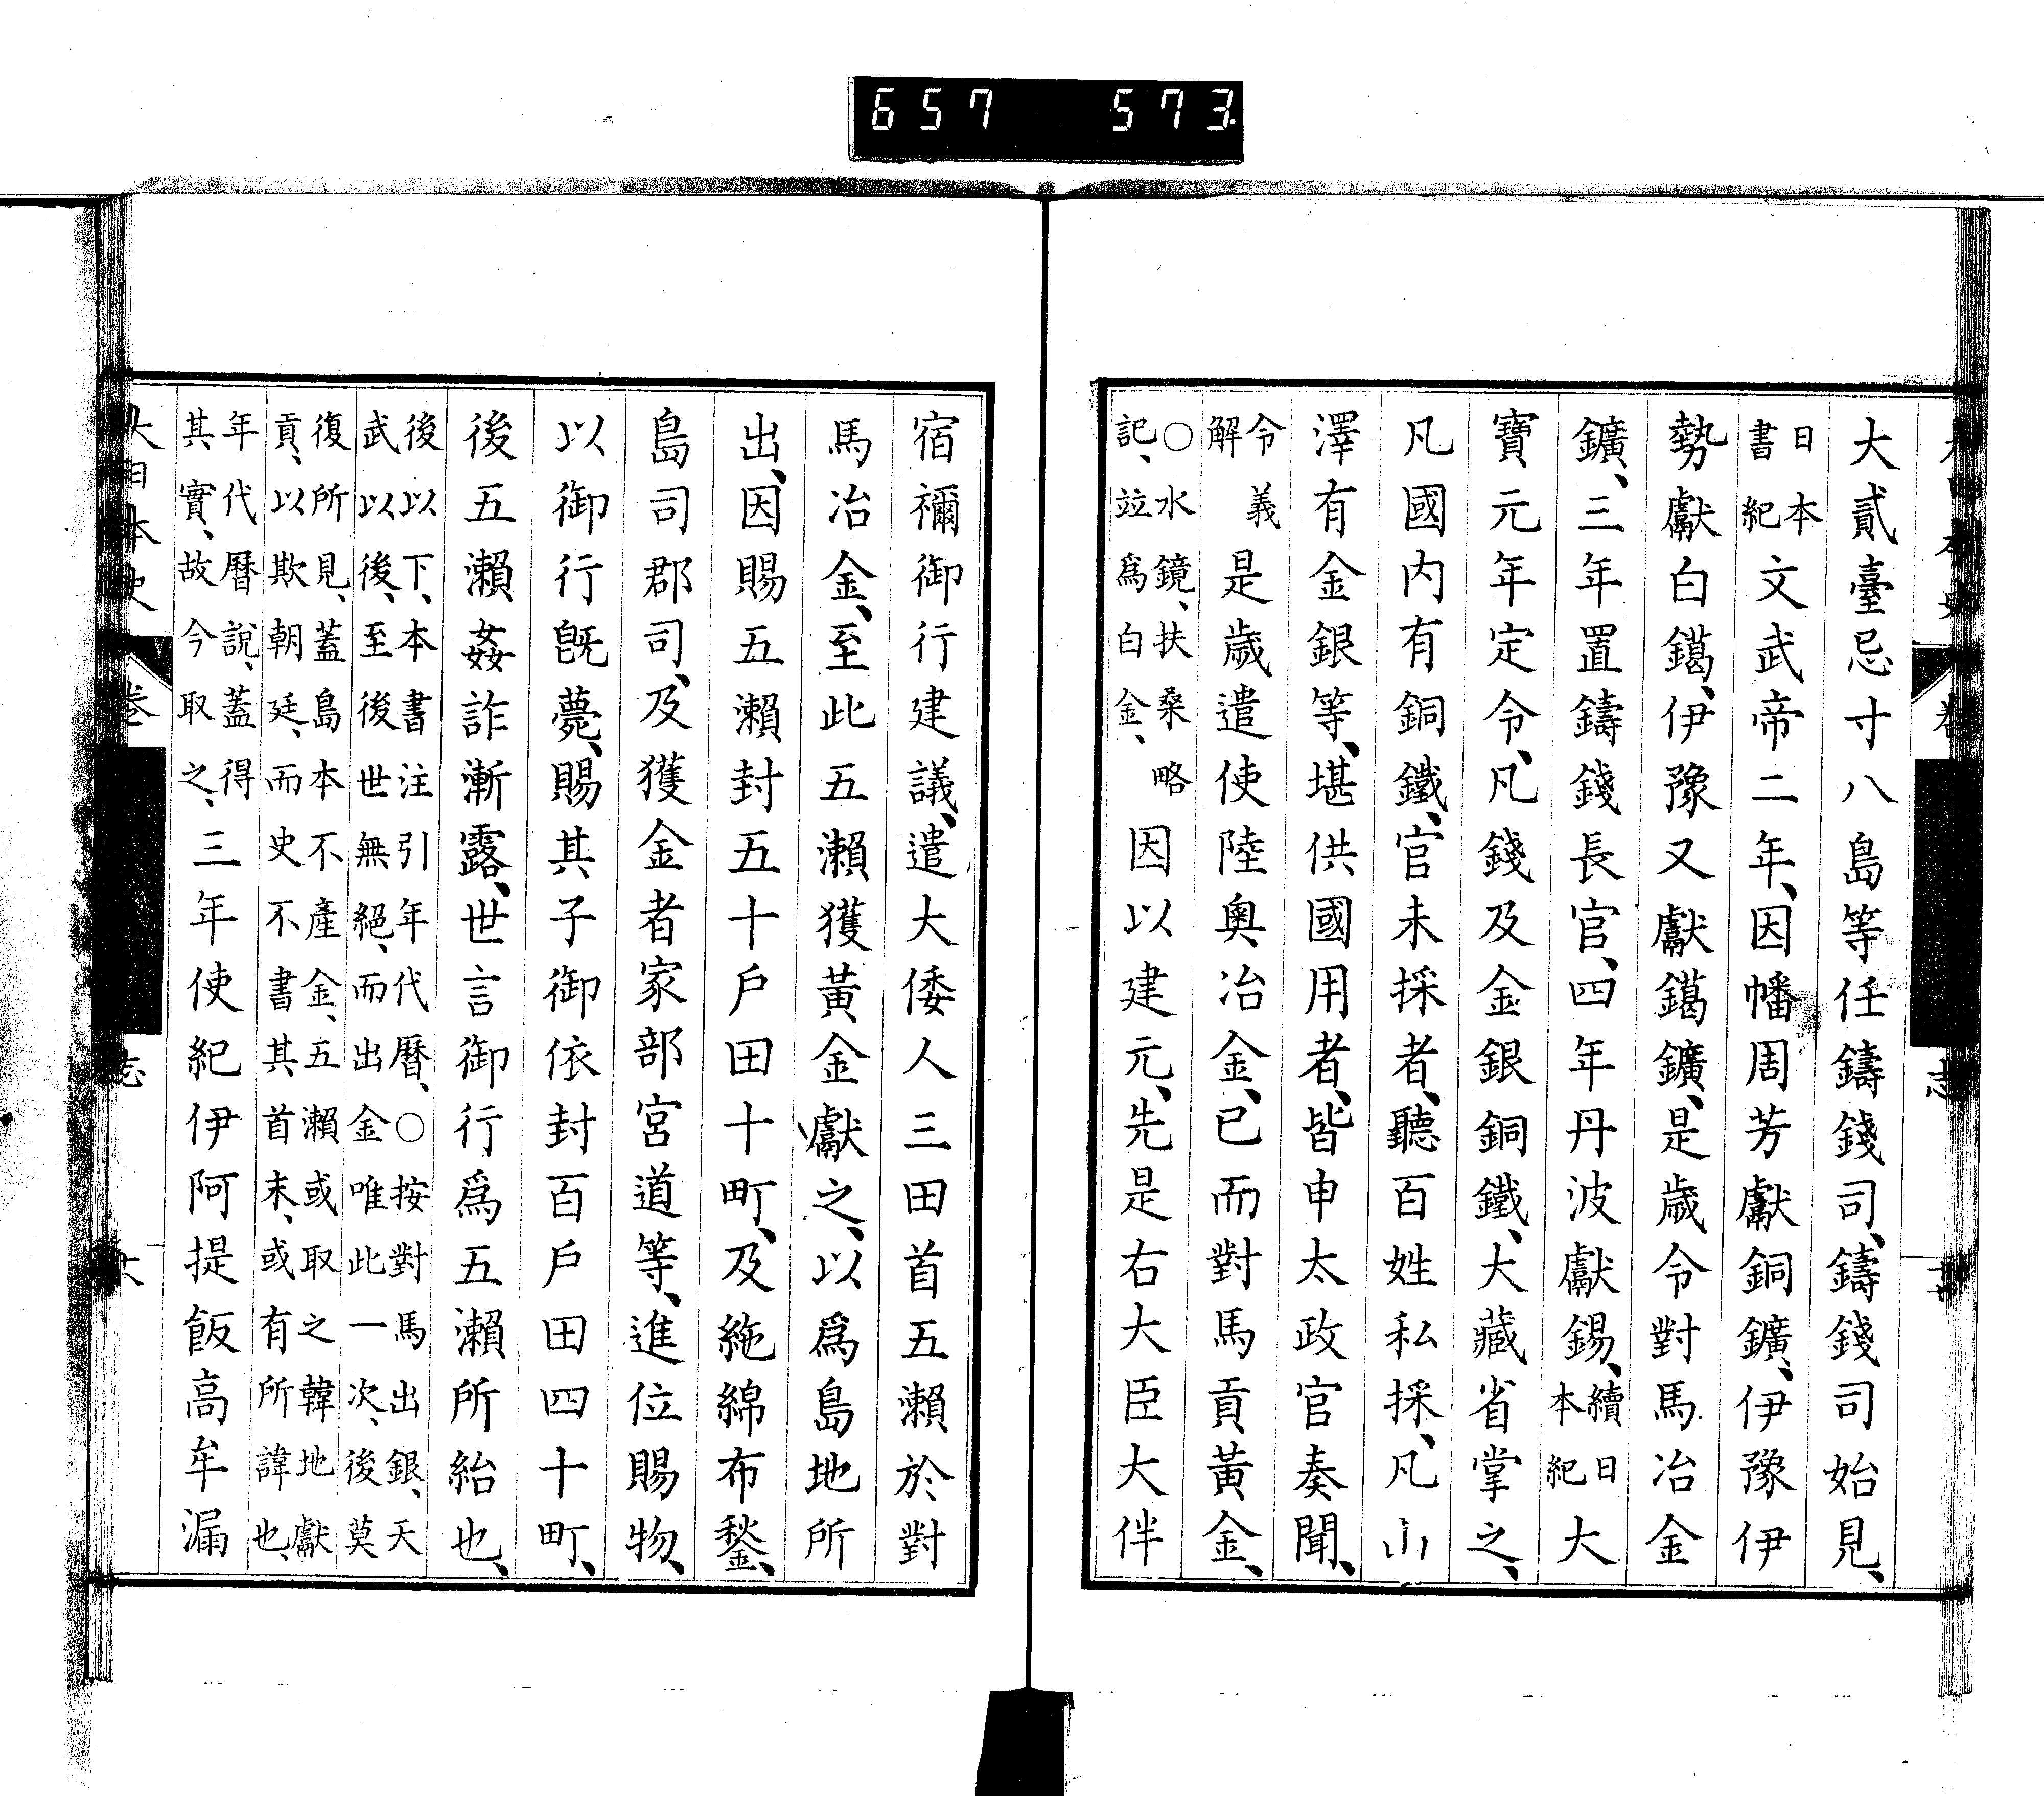 657 573.
大貳臺忌寸八島等任鑄錢司、鑄錢司始見、
日本書紀文武帝二年、因幡周芳獻銅鑛、伊豫伊
勢獻白鑞、伊豫又獻鑞鑛、是歲令對馬冶金
鑛、三年置鑄錢長官、四年丹波獻錫、續日本紀大
寶元年定令、凡錢及金銀銅鐵、大藏省掌之、
凡國内有銅鐵、官未採者、聽百姓私採、凡山
澤有金銀等、堪供國用者、皆申太政官奏聞、
令義解是歲遣使陸奧冶金、已而對馬貢黃金、
○水鏡、扶桑略記、竝爲白金、因以建元、先是右大臣大伴
宿禰御行建議、遣大倭人三田首五瀨於對
馬冶金、至此五瀨獲黃金獻之、以爲島地所
出、因賜五瀨封五十戶田十町、及絁綿布鍬、
島司郡司、及獲金者家部宮道等、進位賜物、
以御行旣薨、賜其子御依封百戶田四十町、
後五瀨姦詐漸露、世言御行爲五瀨所紿也、
後以下、本書注引年代曆、○按對馬出銀、天
武以後、至後世無絕、而出金唯此一次、後莫
復所見、蓋島本不產金、五瀨或取之韓地獻
貢、以欺朝廷、而史不書其首末、或有所諱也、
年代曆說、蓋得其實、故今取之、三年使紀伊阿提飯高牟漏
大日本史 卷 志